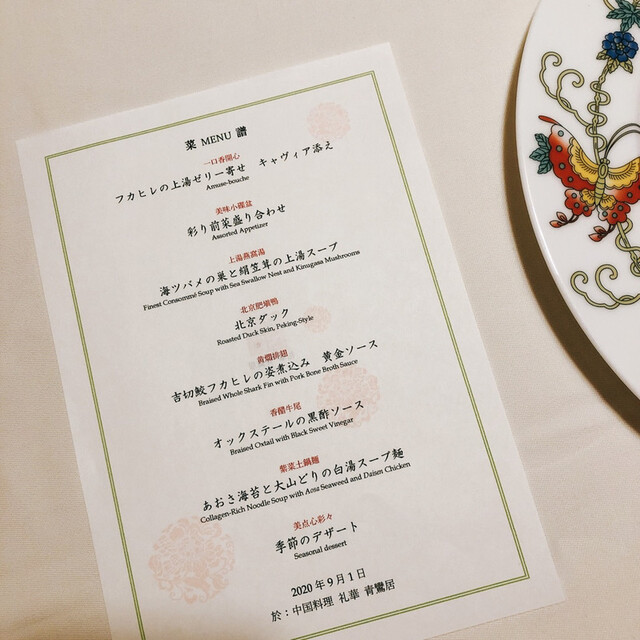 菜 MENU 譜
一口香開心
フカヒレの上湯ゼリー寄せ キャヴィア添え
Amuse-bouche
美味小碟盆
彩り前菜盛り合わせ
Assorted Appetizer
上湯燕窩湯
海ツバメの巣と絹笠茸の上湯スープ
Finest Consommé Soup with Sea Swallow Nest and Kinugasa Mushrooms
北京肥塡鴨
北京ダック
Roasted Duck Skin, Peking-Style
黄燜排翅
吉切鮫フカヒレの姿煮込み 黄金ソース
Braised Whole Shark Fin with Pork Bone Broth Sauce
香醋牛尾
オックステールの黒酢ソース
Braised Oxtail with Black Sweet Vinegar
紫菜土鍋麺
あおさ海苔と大山どりの白湯スープ麺
Collagen-Rich Noodle Soup with Aosa Seaweed and Daisen Chicken
美点心彩々
季節のデザート
Seasonal dessert
2020年9月1日
於:中国料理 礼華 青鸞居